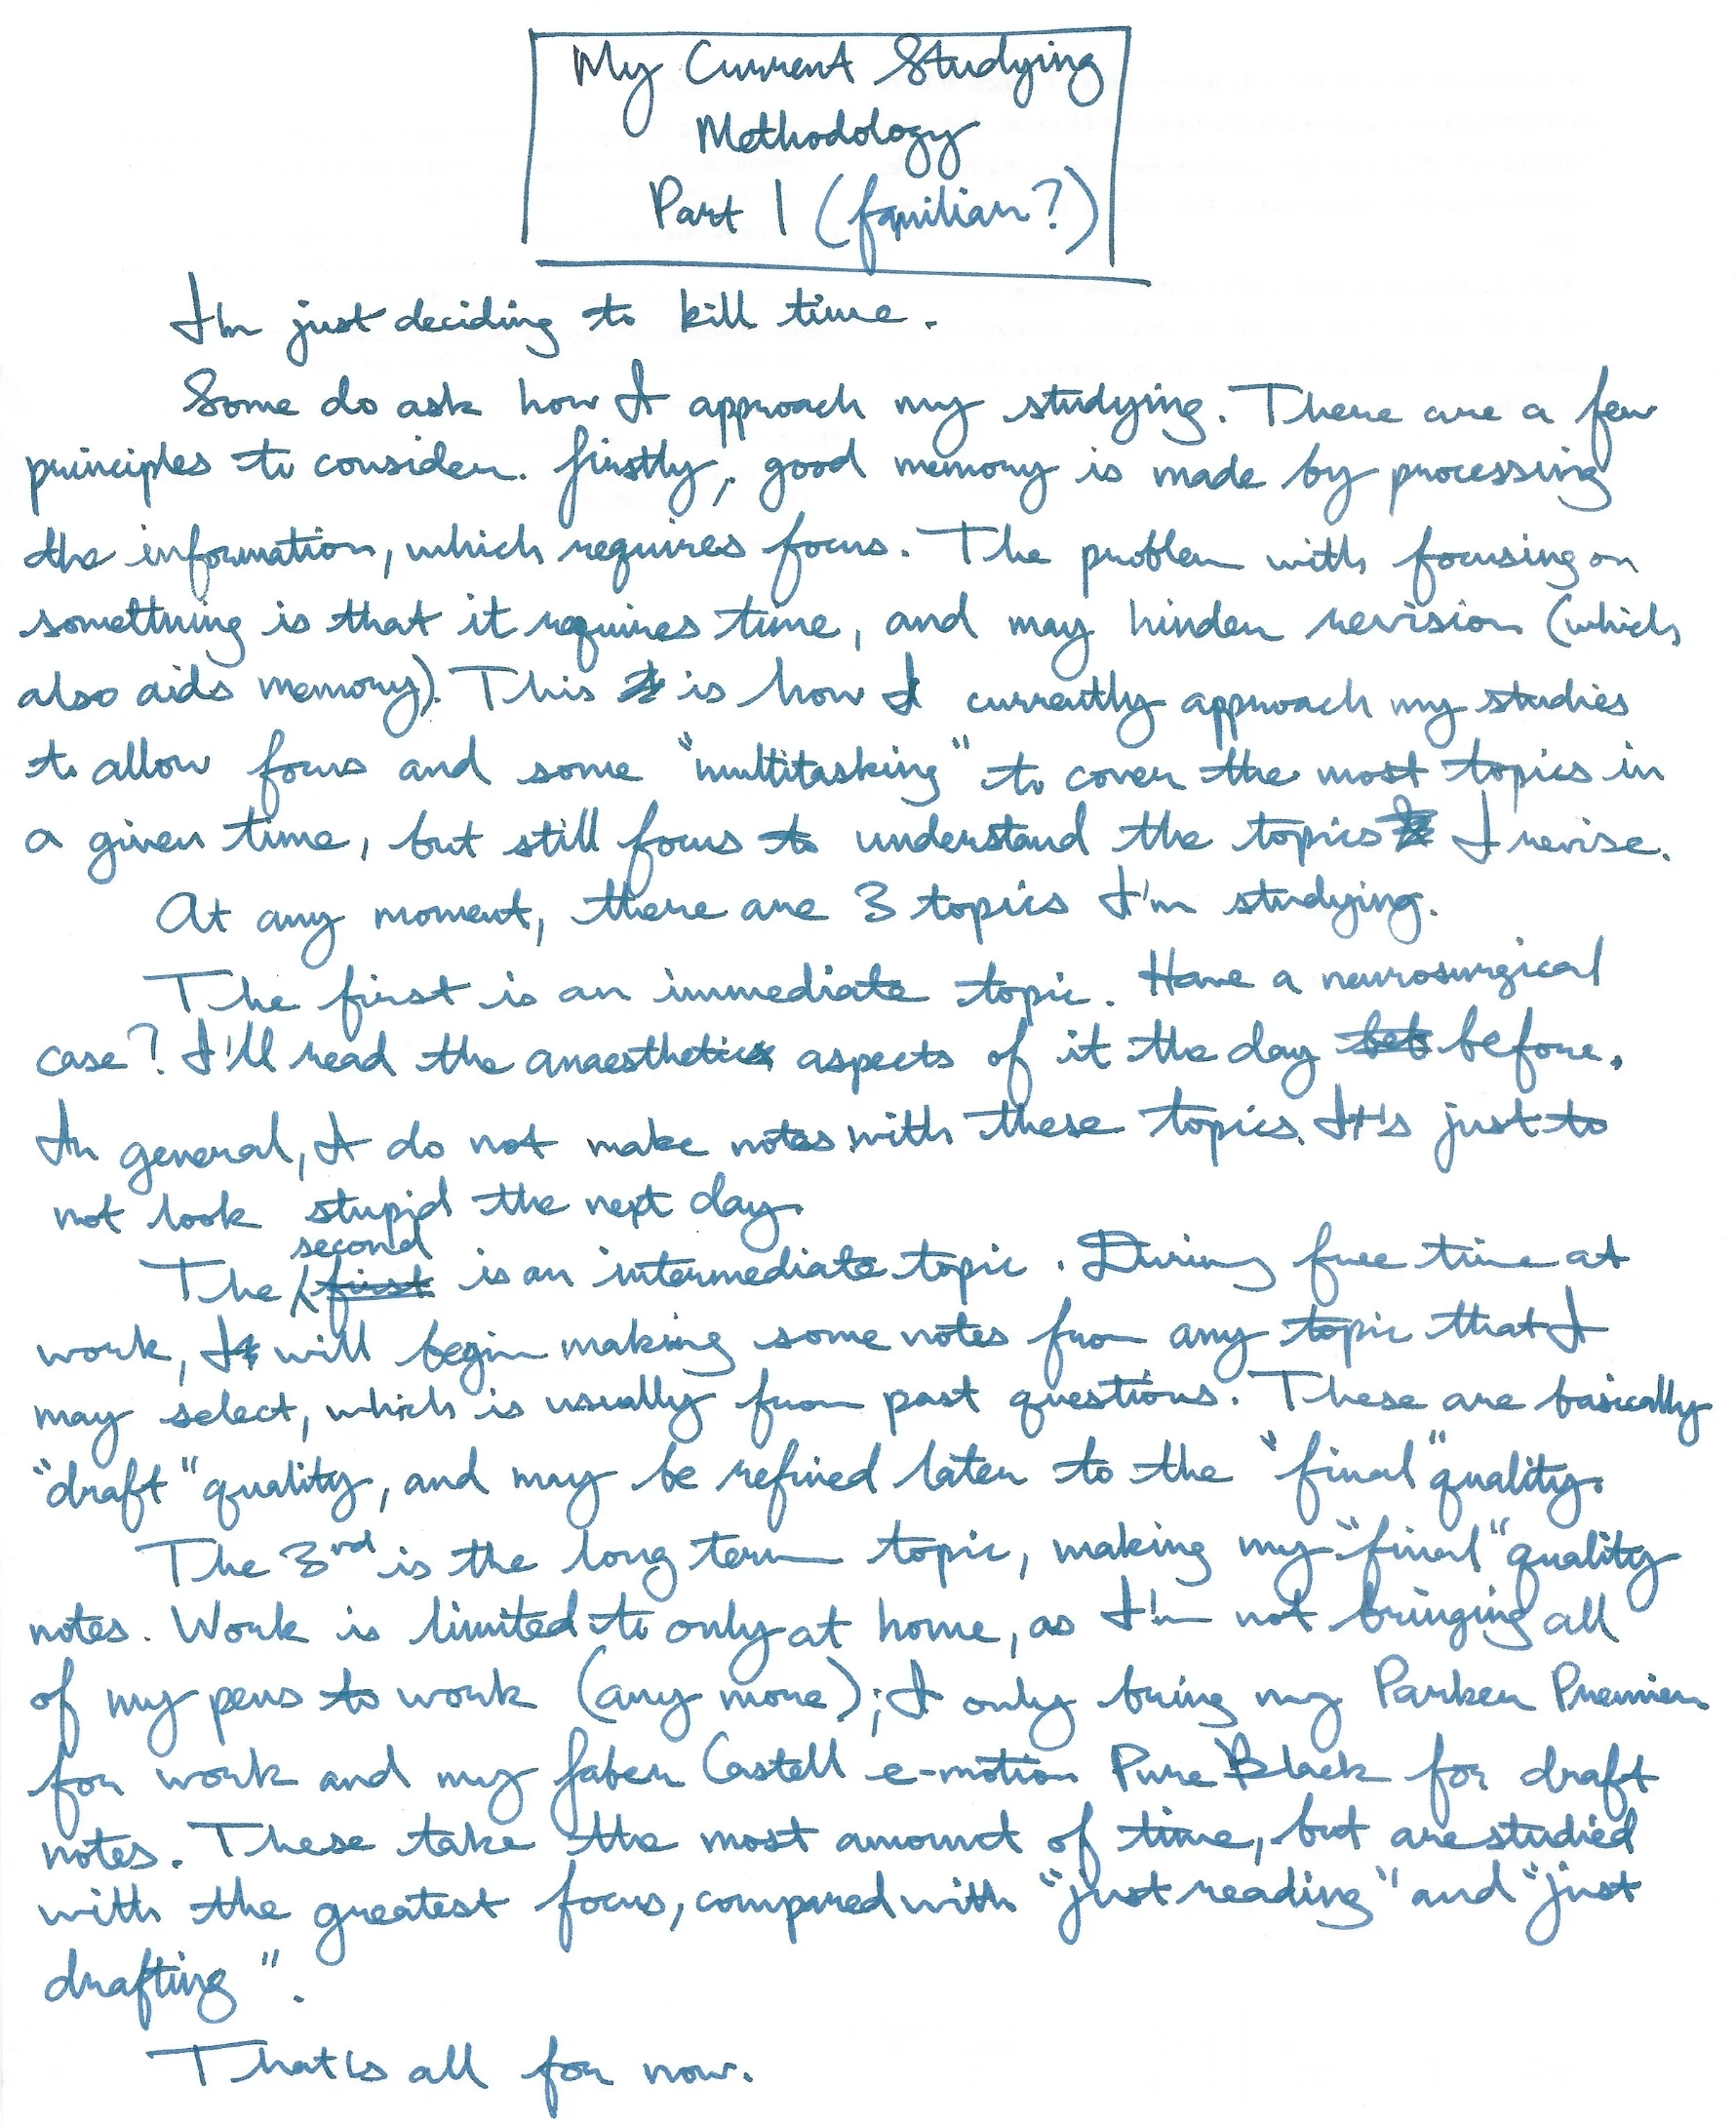 My Current Studying
Methodology
Part 1 (familiar?)
I'm just deciding to kill time.
Some do ask how I approach my studying. There are a few
principles to consider. Firstly, good memory is made by processing
the information, which requires focus. The problem with focusing on
something is that it requires time, and may hinder revision (which
also aids memory). This is how I currently approach my studies
to allow focus and some "multitasking" to cover the most topics in
a given time, but still focus to understand the topics I revise.
At any moment, there are 3 topics I'm studying.
The first is an immediate topic. Have a neurosurgical
case? I'll read the anaesthetic aspects of it the day before.
In general, I do not make notes with these topics. It's just to
not look stupid the next day.
The second is an intermediate topic. During free time at
work, I will begin making some notes from any topic that I
may select, which is usually from past questions. These are basically
"draft" quality, and may be refined later to the "final" quality.
The 3rd is the long term topic, making my "final" quality
notes. Work is limited to only at home, as I'm not bringing all
of my pens to work (any more); I only bring my Parker Premier
for work and my Faber Castell e-motion Pure Black for draft
notes. These take the most amount of time, but are studied
with the greatest focus, compared with "just reading" and "just
drafting".
That's all for now.